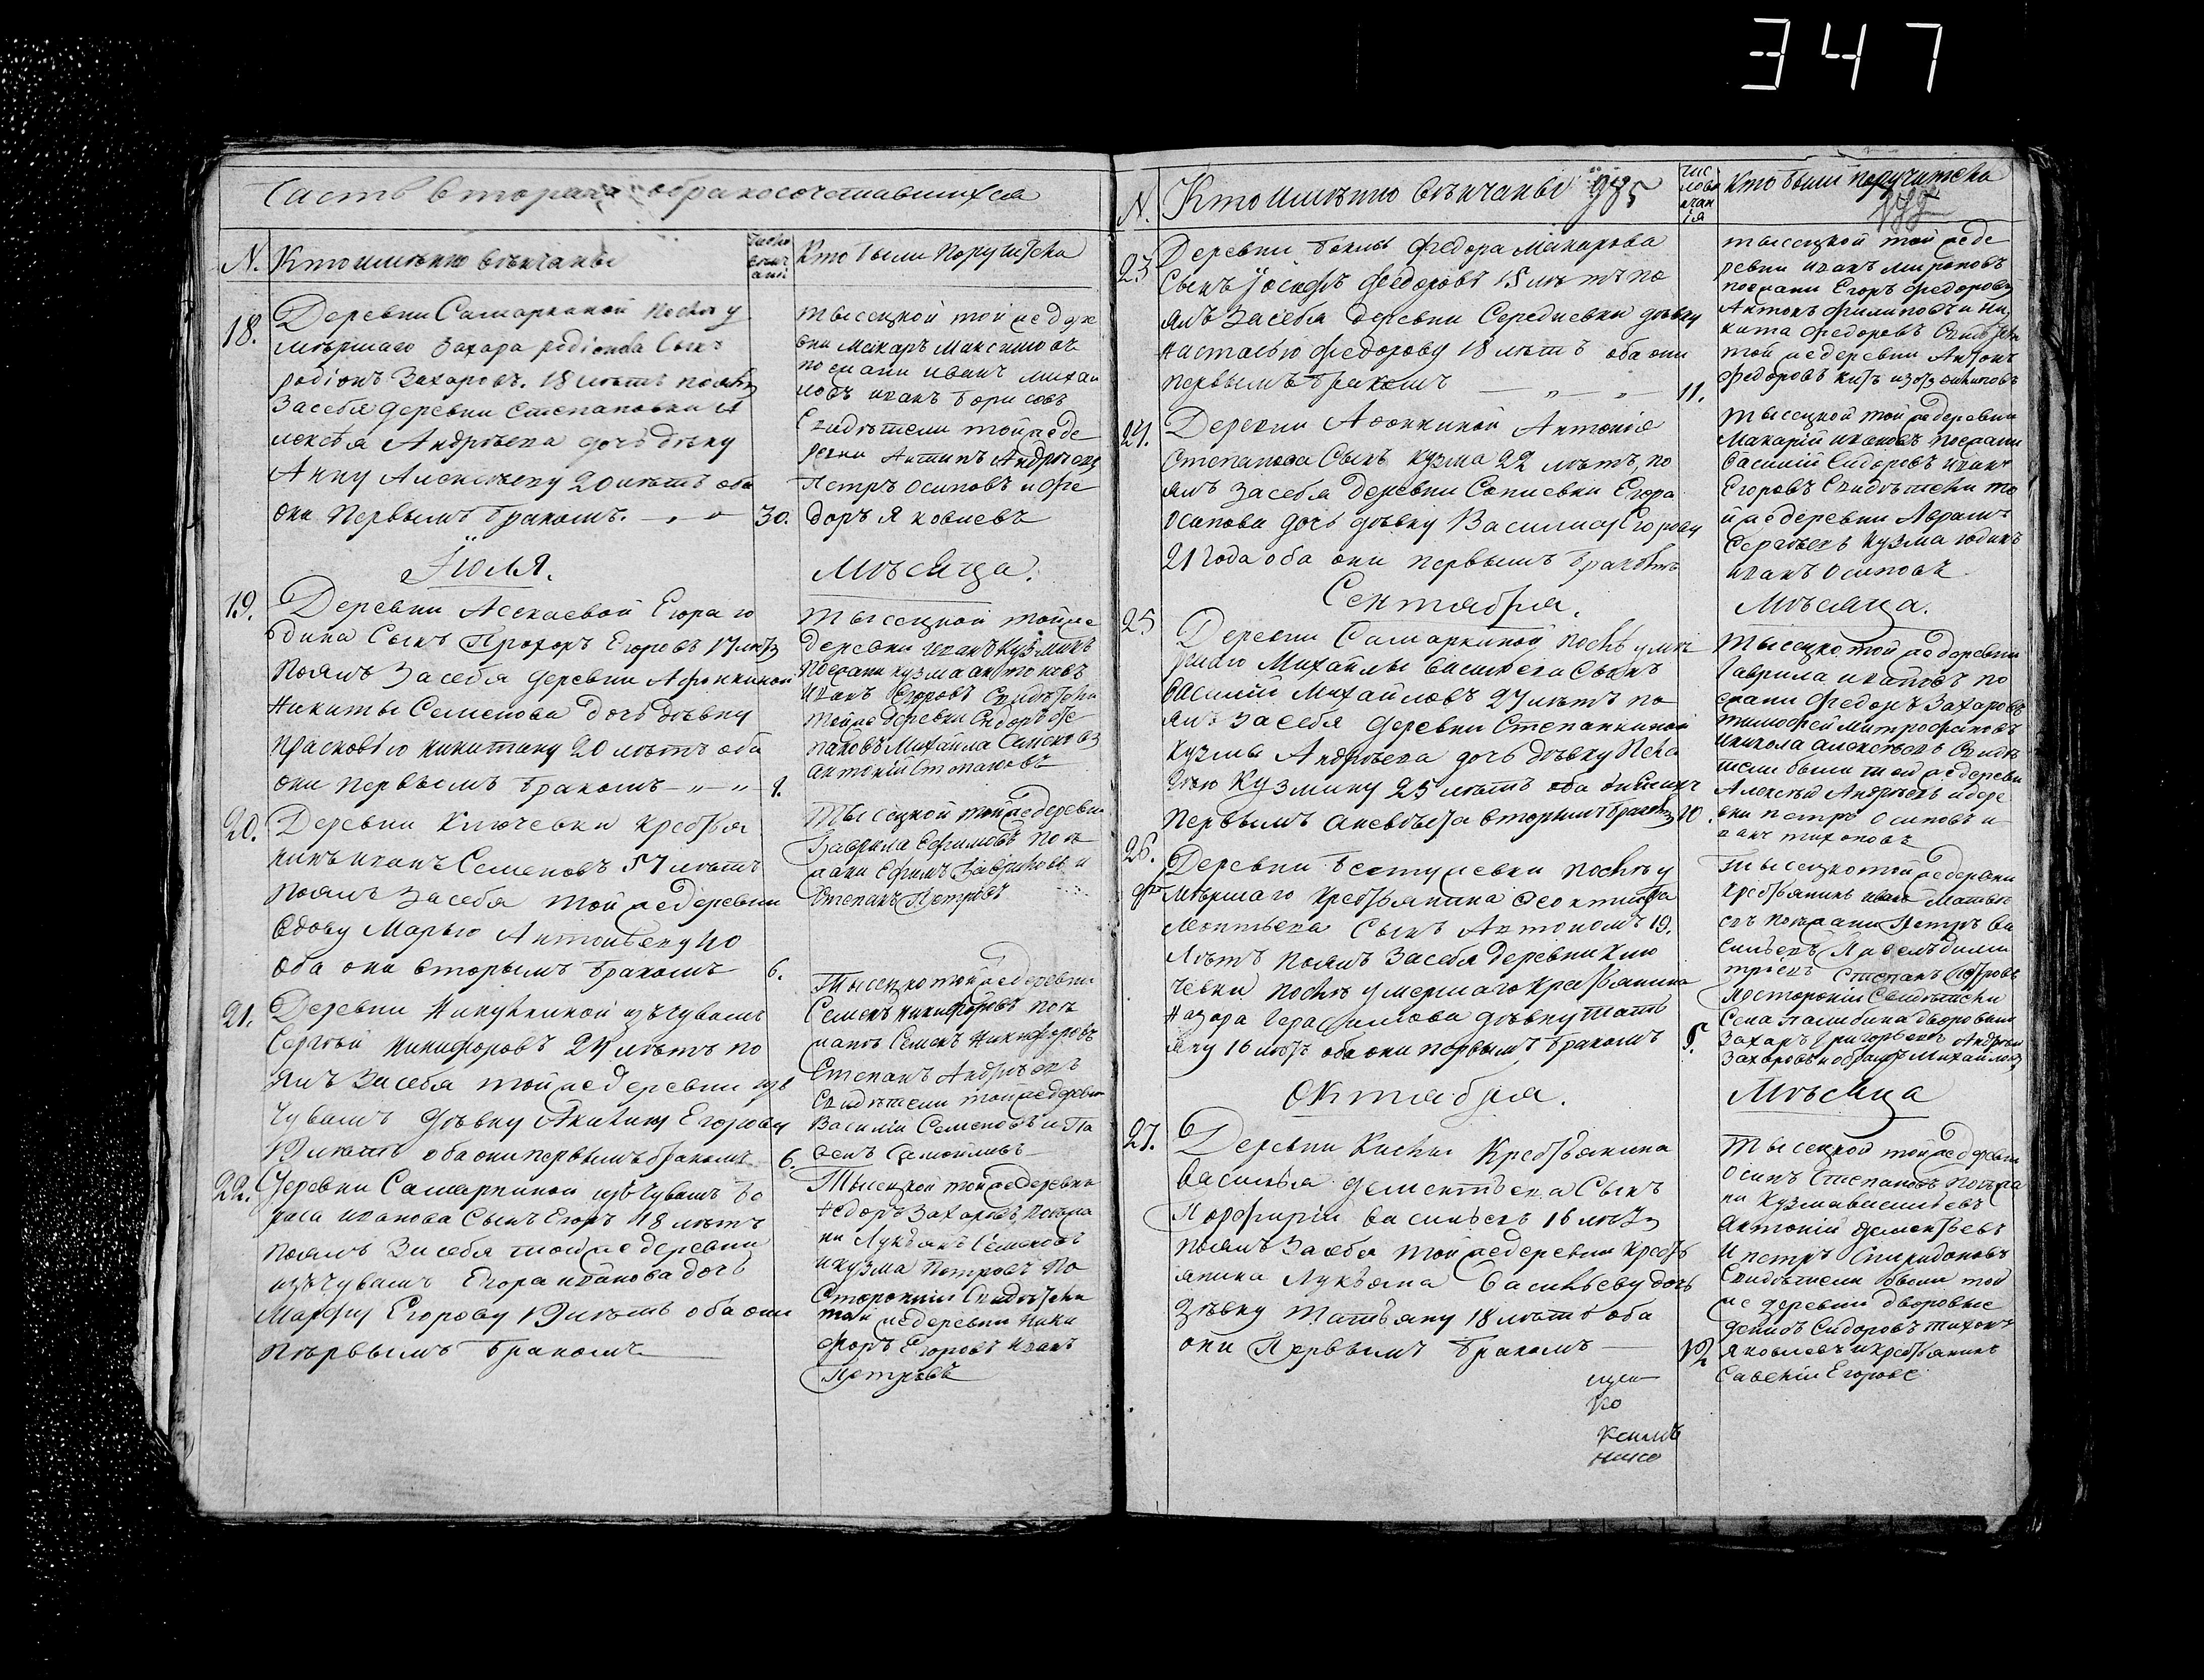 347
Часть вторая о бракосочетавшихся
N. Кто имѣнно вѣнчаны
Кто были Поручители
18.
Деревни Самаркиной после у
мѣршаго Захара родіонова Сынъ
родіонъ Захаровъ. 18 лѣтъ поялъ
За себя деревни Степановки А
лексѣя Андрѣева дочь дѣвку
Анну Алексѣеву 20 лѣтъ оба
они Первымъ бракомъ. 30.
тысецкой той же дере
вни Макаръ Максимовъ
поежани иванъ михаи
ловъ иванъ борисовъ
Свидѣтели той же де
ревни Антипъ Андрѣевъ
Петръ Осиповъ и Фе
доръ Яковлевъ
Іюля.
Мѣсяца.
19.
Деревни Аскаевой Егора ю
дина Сынъ Прохоръ Егоровъ 17 лѣтъ
Поялъ За себя деревни Афонкиной
Никиты Семенова дочь дѣвку
Прасковью никитину 20 лѣтъ оба
они первымъ бракомъ
Тысецкой той же
деревни иванъ Кузминъ
Поежани кузма антоновъ
Иванъ Егоровъ Свидѣтели
той же деревни Сидоръ Сте
пановъ Михайла Семеновъ
Антоній Степановъ
20.
Деревни Ключевки крестья
нинъ иванъ Семеновъ 57 лѣтъ
Поялъ За себя той же деревни
Вдову Марью Антоньеву 40
Оба они вторымъ бракомъ 6.
Тысецкой той же деревни
Гаврила Ефимовъ пое
жани Ефимъ Гавриловъ и
Степанъ Петровъ
21.
Деревни Никушкиной изъ чувашъ
Сергѣй никифоровъ 24 лѣтъ по
ялъ За себя той же деревни изъ
чувашъ дѣвку Акилину Егорову
19 лѣтъ оба они первымъ бракомъ 6.
Тысецкой той же деревни
Семенъ никифоровъ пое
жане Семенъ Никифоровъ
Степанъ Андрѣевъ
Свидѣтели той же деревни
Василій Семеновъ и Па
велъ Самойловъ
22.
Деревни Самаркиной изъ чувашъ Та
раса иванова Сынъ Егоръ 18 лѣтъ
Поялъ За себя той же деревни
изъ чувашъ Егора иванова дочь
Марфу Егорову 19 лѣтъ оба они
Первымъ бракомъ
Тысецкой той же деревни
Федоръ Захаровъ, поежа
ни Лукьянъ Семеновъ
и кузма Петровъ По
сторонніи Свидѣтели
той же деревни Ники
форъ Егоровъ Иванъ
Петровъ
N. Кто имѣнно вѣнчаны 985
Кто были поручители
23.
Деревни Боклы Федора Макарова
Сынъ Іосифъ Федоровъ 18 лѣтъ по
ялъ За себя деревни Середневки дѣвку
Настасью Федорову 18 лѣтъ оба они
первымъ бракомъ 11.
тысецкой той же де
ревни иванъ мироновъ
поежани Егоръ Федоровъ
Антонъ Филиповъ и Ни
кита Федоровъ Свидѣтели
той же деревни Антонъ
Федоровъ
24.
Деревни Афонкиной Антонія
Степанова Сынъ Кузма 22 лѣтъ, по
ялъ За себя деревни Сопиевки Егора
Осипова дочь дѣвку Василису Егорову
21 года оба они первымъ бракомъ
Тысецкой той же деревни
Макарій ивановъ поежани
Василій Сидоровъ иванъ
Егоровъ Свидѣтели то
й же деревни Абрамъ
Сергѣевъ Кузма юдинъ
иванъ Осиповъ
Сентября.
Мѣсяца.
25
Деревни Самаркиной послѣ умѣ
ршаго Михайлы Васильева Сынъ
Василій Михайловъ 27 лѣтъ по
ялъ За себя деревни Степанкиной
Кузмы Андрѣева дочь дѣвку Пела
гѣю Кузмину 25 лѣтъ оба
Первымъ а невѣста вторымъ бракомъ 10.
Тысецкой той же деревни
Гаврила ивановъ по
ежани Федоръ Захаровъ
Тимофей Митрофановъ
Никола Алексѣевъ Свидѣ
тели были той же деревни
Алексѣй Андрѣевъ
вни петръ Осиповъ и
ванъ тихоновъ
26.
Деревни Бестужевки послѣ у
мѣршаго крестьянина Феоктиста
Леонтьева Сынъ Автономъ 19.
Лѣтъ Поялъ За себя деревни Клю
чевки послѣ умершаго крестьянина
Назара Герасимова дѣвку Тать
яну 16 лѣтъ оба они первымъ бракомъ
Тысецкой той же деревни
крестьянинъ иванъ Матвѣ
евъ поежани Петръ Ва
сильевъ Павелъ Дими
тріевъ Степанъ Петровъ
Посторонніи Свидѣтели
Села палибина дворовыи
Захаръ Григорьевъ Андрѣй
Захаровъ Михайловъ
Октября.
Мѣсяца
27.
Деревни Кислы Крестьянина
Василья дементьева Сынъ
Порфирій Васильевъ 16 лѣтъ
поялъ За себя той же деревни кресть
янина Лукьяна Васильеву дочь
дѣвку Татьяну 18 лѣтъ оба
они Первымъ бракомъ 12
Тысецкой той же деревни
Осипъ Степановъ поежа
ни Кузма васильевъ
Антоній дементьевъ
и петръ Спиридоновъ
Свидѣтели были той
же деревни дворовые
денисъ Сидоровъ тихонъ
Яковлевъ и крестьянинъ
Савелій Егоровъ